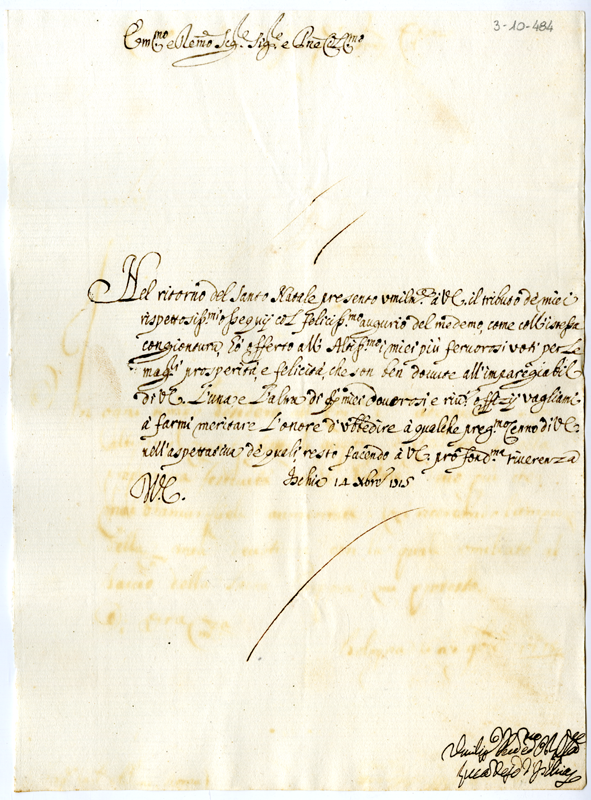 3-10-484
Em.mo e Rev.mo Sig.re Sig.re e P.ne Col.mo
Nel ritorno del Santo Natale presento umilm.te à V.E. il tributo de miei
rispettosiss.mi ossequij col feliciss.mo augurio del medemo, come coll'istessa
congiontura, hò offerto all' Altiss.mo i miei più fervorosi voti per le
magg.ri prosperità, e felicità, che son ben dovute all'impareggiabil
di V.E. L'una e l'altra di q.ti miei doverosi, e riv.ti offizij vagliami
à farmi meritare l'onore d'ubbedire à qualche preg.mo cenno di V.E.
nell'aspettativa de quali resto facendo à V.E. profond.ma riverenza
V.E. Ischia 14 Xbre 1715